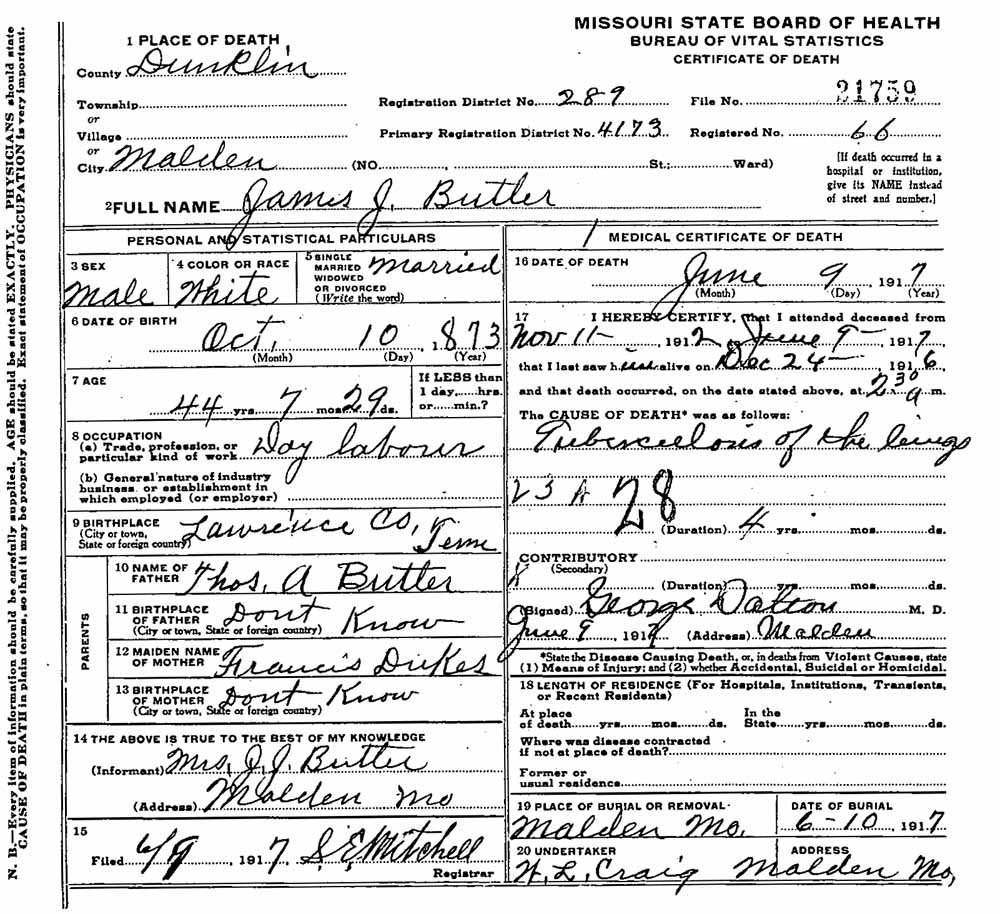 MISSOURI STATE BOARD OF HEALTH
BUREAU OF VITAL STATISTICS
CERTIFICATE OF DEATH
1 PLACE OF DEATH
County Dunklin
Township
or
Village
or
City Malden (NO. St.; Ward)
Registration District No. 289 File No. 21759
Primary Registration District No. 4173 Registered No. 66
[If death occurred in a
hospital or institution,
give its NAME instead
of street and number.]
2 FULL NAME James J. Butler
PERSONAL AND STATISTICAL PARTICULARS
3 SEX
Male
4 COLOR OR RACE
White
5 SINGLE
MARRIED
WIDOWED
OR DIVORCED
(Write the word)
Married
6 DATE OF BIRTH
Oct. 10, 1873
(Month) (Day) (Year)
7 AGE
44 yrs. 7 mos. 29 ds.
If LESS than
1 day,....hrs.
or.....min.?
8 OCCUPATION
(a) Trade, profession, or
particular kind of work Day labour
(b) General nature of industry
business, or establishment in
which employed (or employer)
9 BIRTHPLACE
(City or town,
State or foreign country)
Lawrence Co, Tenn
PARENTS
10 NAME OF
FATHER Thos. A Butler
11 BIRTHPLACE
OF FATHER
(City or town, State or foreign country)
Dont Know
12 MAIDEN NAME
OF MOTHER Francis Dukes
13 BIRTHPLACE
OF MOTHER
(City or town, State or foreign country)
Dont Know
14 THE ABOVE IS TRUE TO THE BEST OF MY KNOWLEDGE
(Informant) Mrs. J. J. Butler
(Address) Malden Mo
15
Filed 6/9, 1917 S. E. Mitchell
Registrar
MEDICAL CERTIFICATE OF DEATH
16 DATE OF DEATH
June 9, 1917
(Month) (Day) (Year)
17 I HEREBY CERTIFY, that I attended deceased from
Nov 11, 1912, June 9, 1917
that I last saw him alive on Dec 24, 1916,
and that death occurred, on the date stated above, at 2 30 a m.
The CAUSE OF DEATH* was as follows:
Tuberculosis of the lungs
23 A 28
(Duration) 4 yrs. mos. ds.
CONTRIBUTORY
(Secondary)
(Duration) yrs. mos. ds.
(Signed) George Dalton M. D.
June 9, 1917 (Address) Malden
*State the Disease Causing Death, or, in deaths from Violent Causes, state
(1) Means of Injury; and (2) whether Accidental, Suicidal or Homicidal.
18 LENGTH OF RESIDENCE (For Hospitals, Institutions, Transients,
or Recent Residents)
At place
of death yrs. mos. ds.
In the
State yrs. mos. ds.
Where was disease contracted
if not at place of death?
Former or
usual residence
19 PLACE OF BURIAL OR REMOVAL
Malden Mo.
DATE OF BURIAL
6-10, 1917
20 UNDERTAKER
W. L. Craig
ADDRESS
Malden Mo,
N. B.—Every item of information should be carefully supplied. AGE should be stated EXACTLY. PHYSICIANS should state
CAUSE OF DEATH in plain terms, so that it may be properly classified. Exact statement of OCCUPATION is very important.